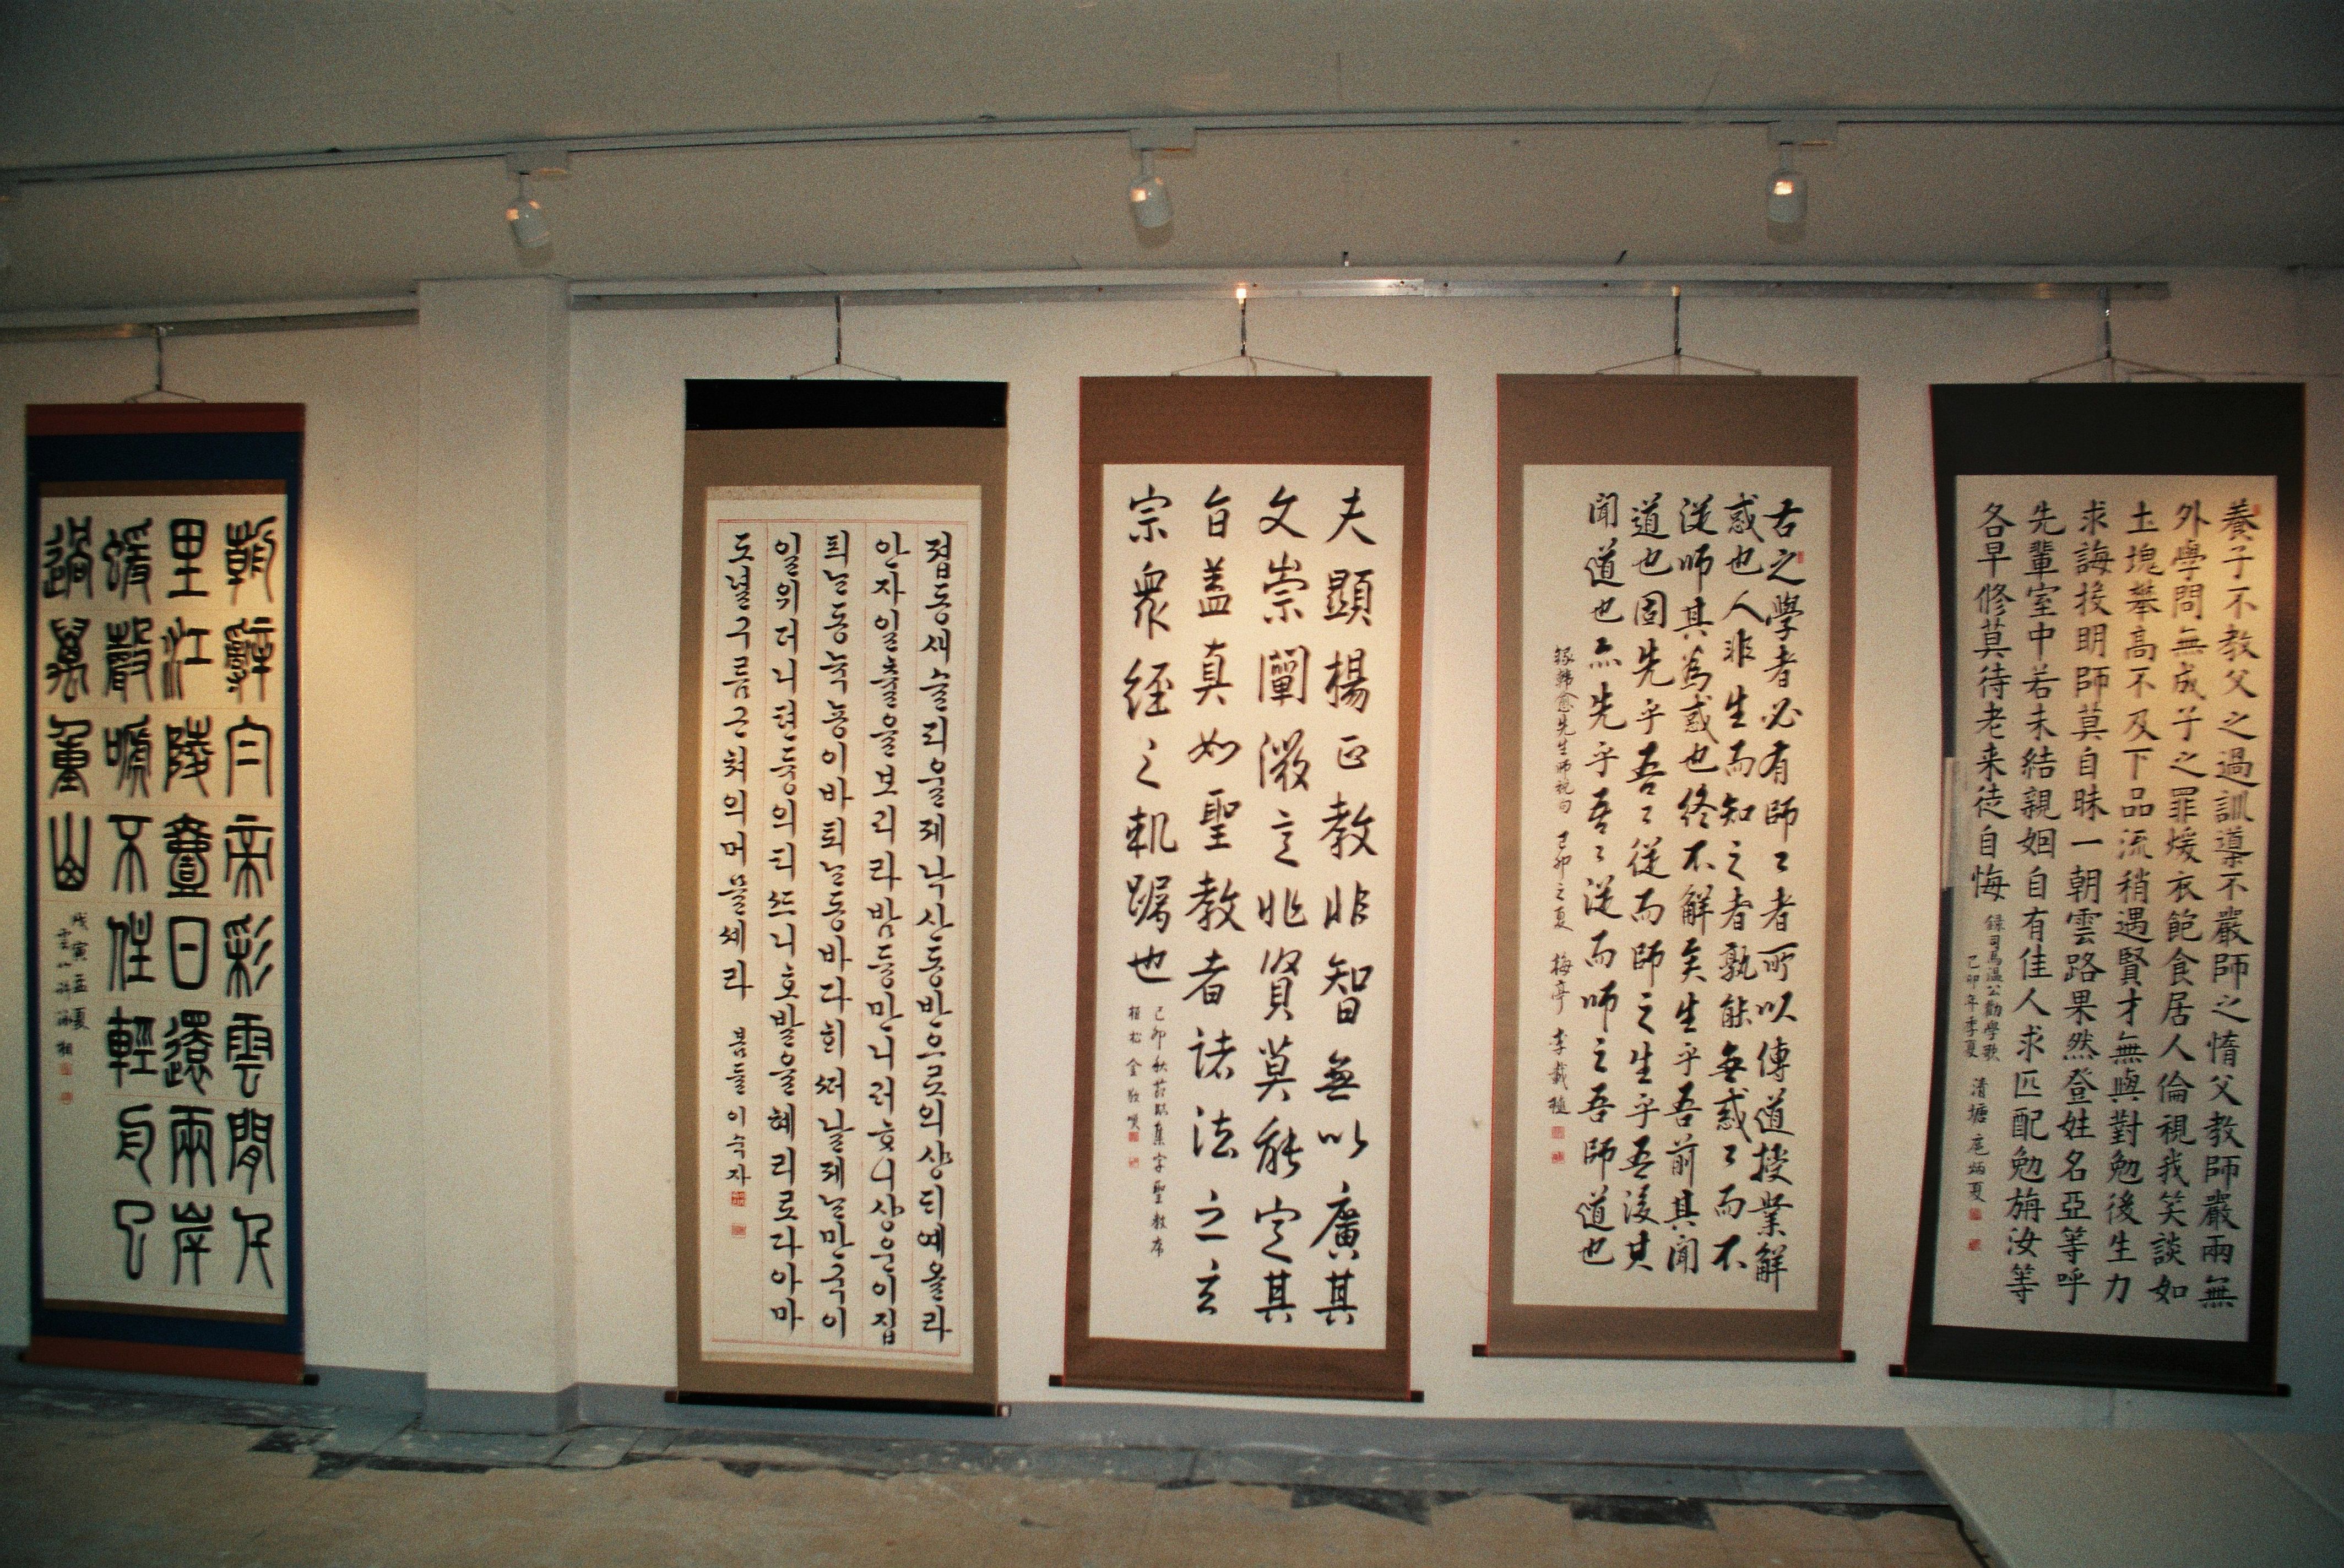 朝辭白帝彩雲間千
里江陵壹日還兩岸
蝯聲嗁不住輕舟已
過萬重山
戊寅孟夏
졉동새슬피울제낙산동반으로의상ᄃᆡ예올라
안자일츌을보리라밤듕만니러ᄒᆞ니상운이집
픠ᄂᆞᆫ동뉵뇽이바퇴ᄂᆞᆫ동바다ᄒᆡ ᄯᅥ날제ᄂᆞᆫ만국이
일위더니텬듕의티ᄯᅳ니호발을혜리로다아마
도녈구름근쳐의머믈셰라 봄뜰 이숙자
夫顯楊正教非智無以廣其
文崇闡微言非賢莫能定其
旨蓋真如聖教者諸法之玄
宗衆經之軌躅也
己卯秋於臨集字聖教序
栢松 金
古之學者必有師〻者所以傳道授業解
惑也人非生而知之者孰能無惑〻而不
從师其為惑也終不解矣生乎吾前其聞
道也固先乎吾〻從而師之生乎吾後其
聞道也亦先乎吾〻從而师之吾師道也
録韓愈先生师說句 己卯之夏 梅亭 李載植
養子不教父之過訓導不嚴師之惰父教師嚴兩無
外學問無成子之罪煖衣飽食居人倫視我笑談如
土塊攀高不及下品流稍遇賢才無與對勉後生力
求誨投明師莫自昧一朝雲路果然登姓名亞等呼
先輩室中若未結親姻自有佳人求匹配勉旃汝等
各早修莫待老来徒自悔
録司馬温公勸學歌
己卯年季夏 清塘 炳夏